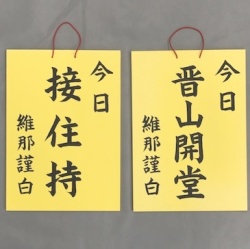 今日
晋山開堂
維那謹白
今日
接住持
維那謹白